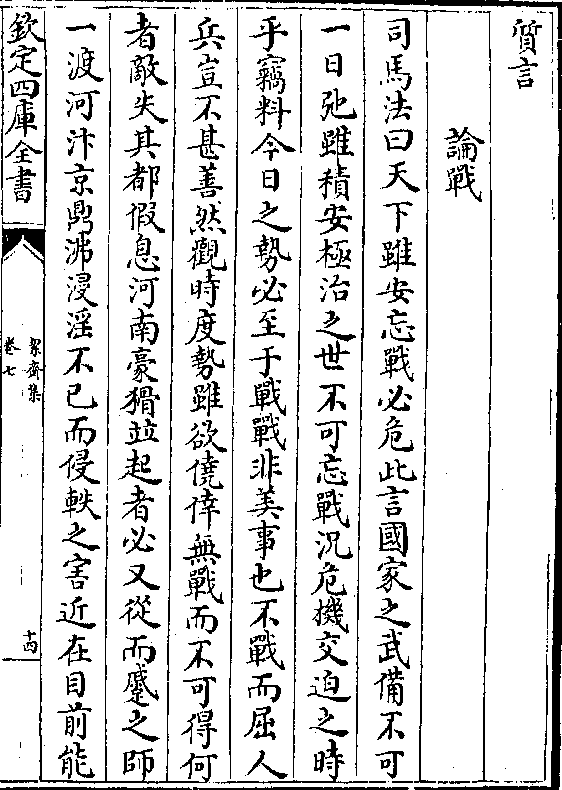 質言
論戰
司馬法曰天下雖安忘戰必危此言國家之武備不可
一日弛雖積安極治之世不可忘戰況危機交迫之時
乎竊料今日之勢必至于戰戰非美事也不戰而屈人
兵豈不甚善然觀時度勢雖欲僥倖無戰而不可得何
者敵失其都假息河南豪猾並起者必又從而蹙之師
一渡河汴京鼎沸浸淫不已而侵軼之害近在目前能
欽定四庫全書
絜齋集
卷七
十四